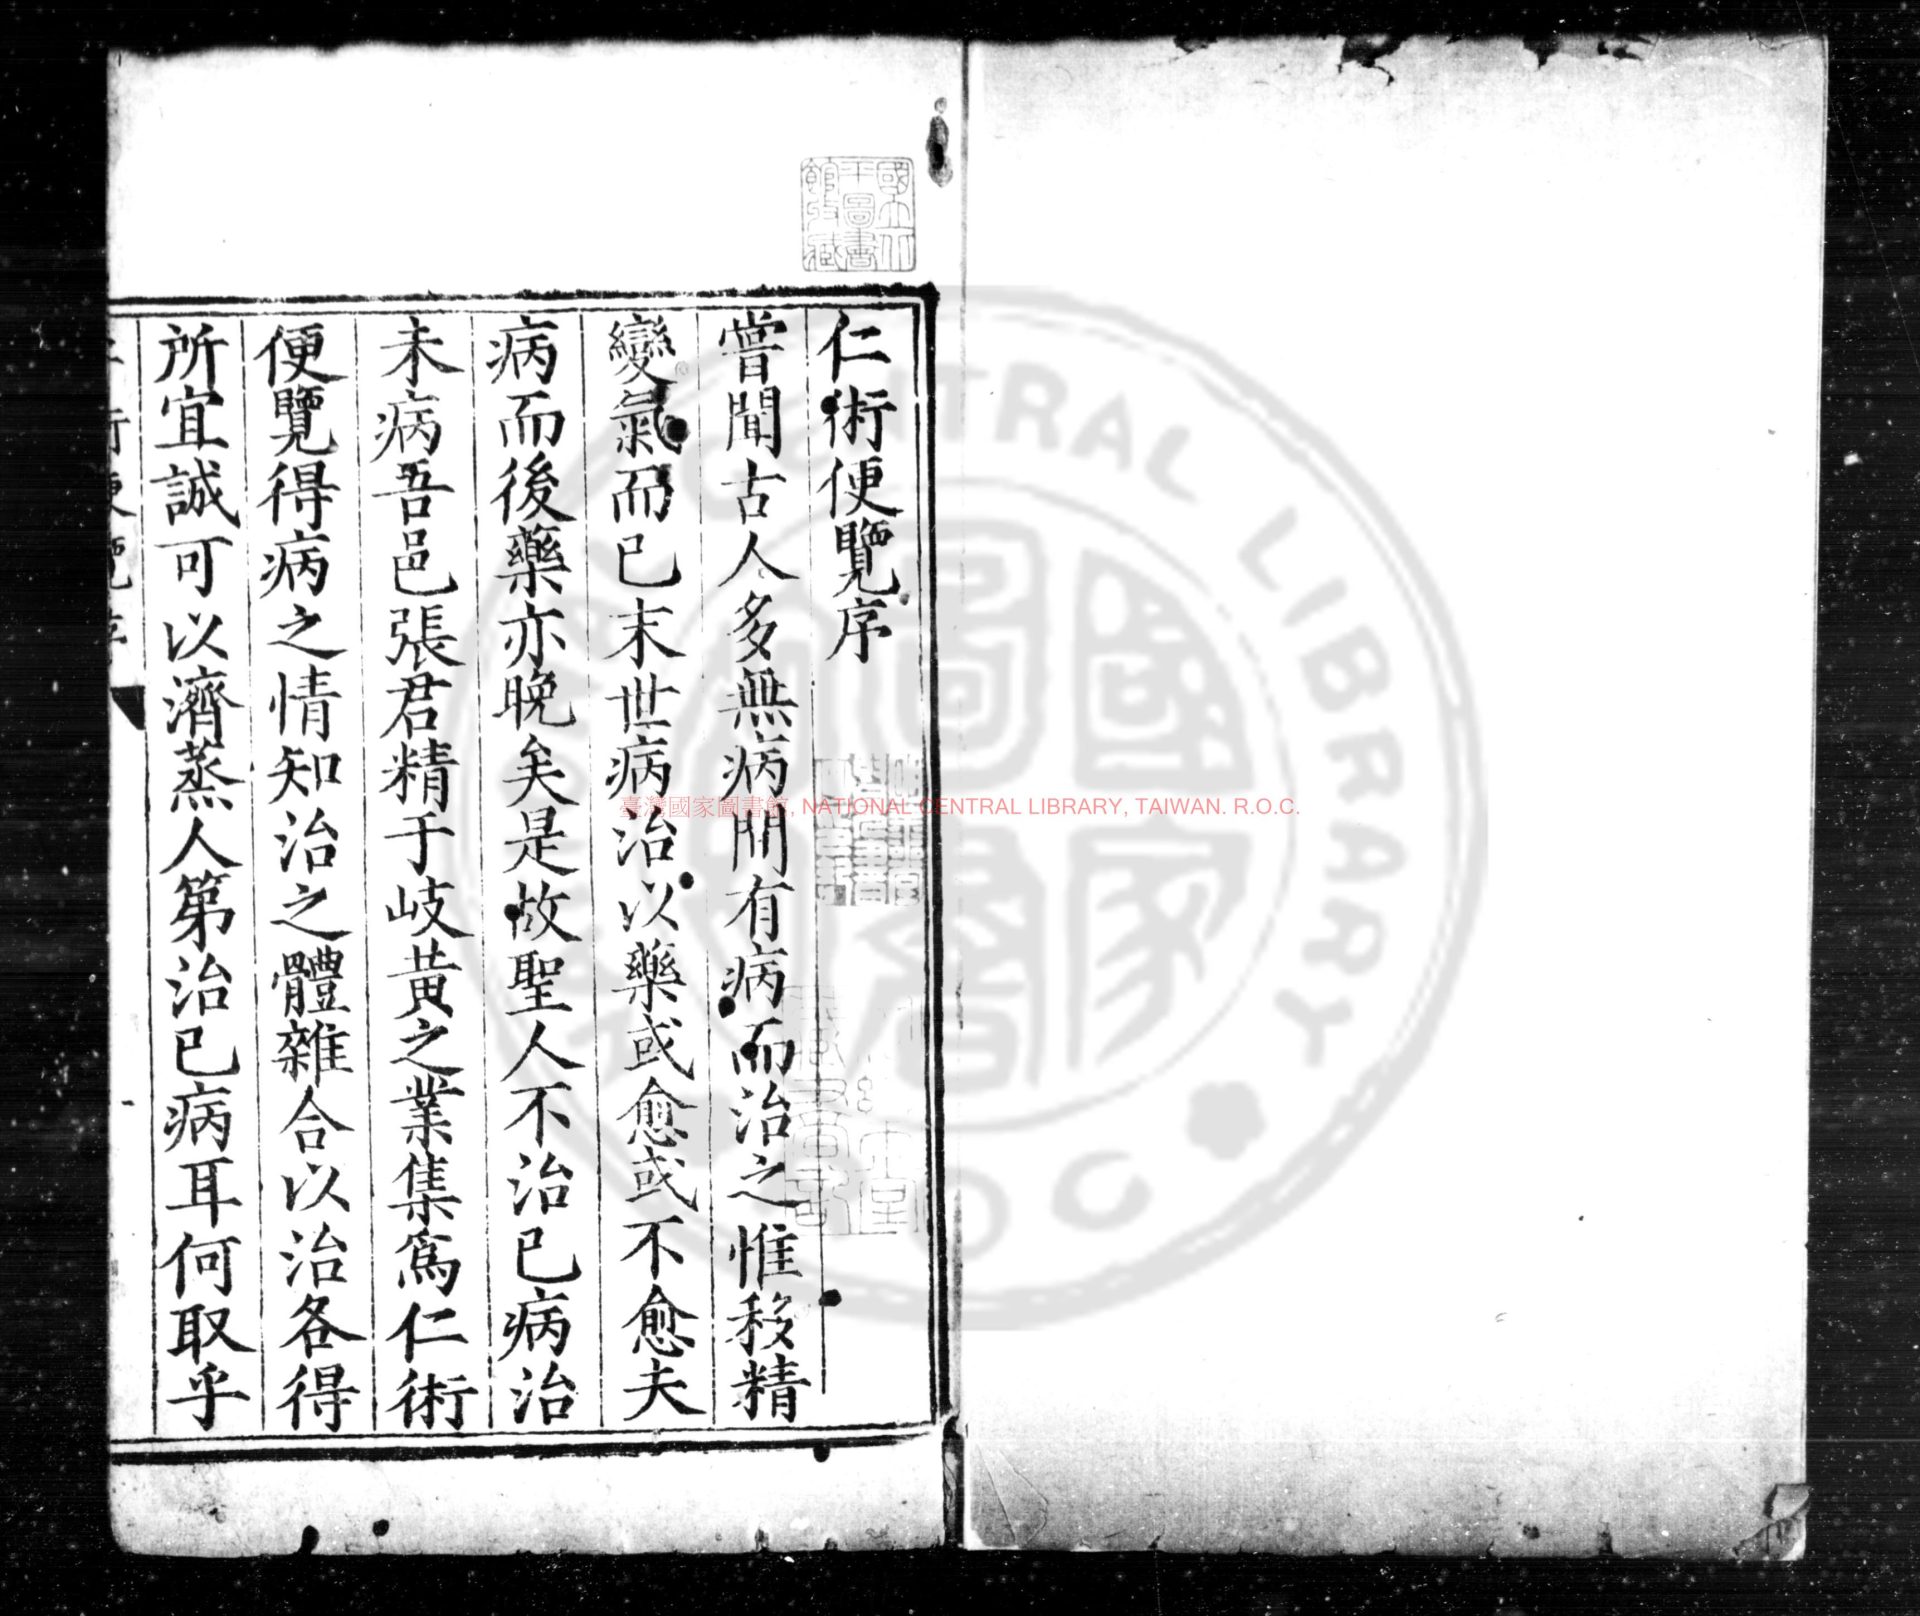 仁術便覽序
嘗聞古人多無病間有病而治之惟移精
變氣而已末世病治以藥或愈或不愈夫
病而後藥亦晚矣是故聖人不治已病治
未病吾邑張君精于岐黃之業集爲仁術
便覽得病之情知治之體雜合以治各得
所宜誠可以濟蒸人第治已病耳何取乎
國立北
平圖書
館收藏
臺灣國家圖書館, NATIONAL CENTRAL LIBRARY, TAIWAN. R.O.C.
CENTRAL LIBRARY
國家圖書